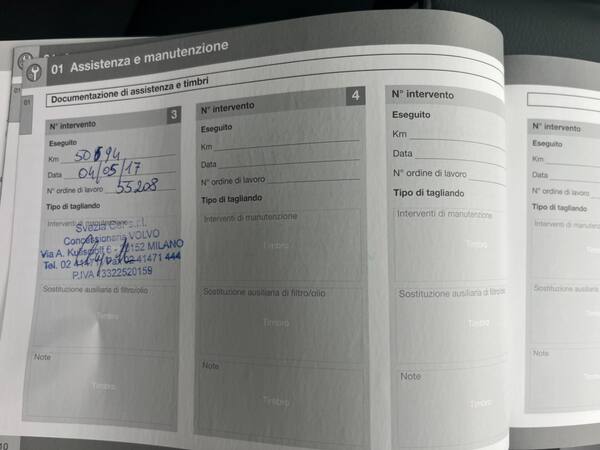 01 Assistenza e manutenzione
01
Documentazione di assistenza e timbri
N° intervento 3
Eseguito
Km 50594
Data 04/05/17
N° ordine di lavoro 55208
Tipo di tagliando
Interventi di manutenzione
Svezia Car s.r.l.
Concessionaria VOLVO
Via A. 6 - 20152 MILANO
Tel. 02 Fax 02 41471 444
P.IVA 13322520159
Sostituzione ausiliaria di filtro/olio
Timbro
Note
Timbro
N° intervento 4
Eseguito
Km
Data
N° ordine di lavoro
Tipo di tagliando
Interventi di manutenzione
Timbro
Sostituzione ausiliaria di filtro/olio
Timbro
Note
Timbro
N° intervento
Eseguito
Km
Data
N° ordine di lavoro
Tipo di tagliando
Interventi di manutenzione
Timbro
Sostituzione ausiliaria di fi
Timbro
Note
Timbro
N° intervento
Eseguito
Km
Data
N° ordine di
Tipo di tagl
Interventi di
Sostituzione
Note
10